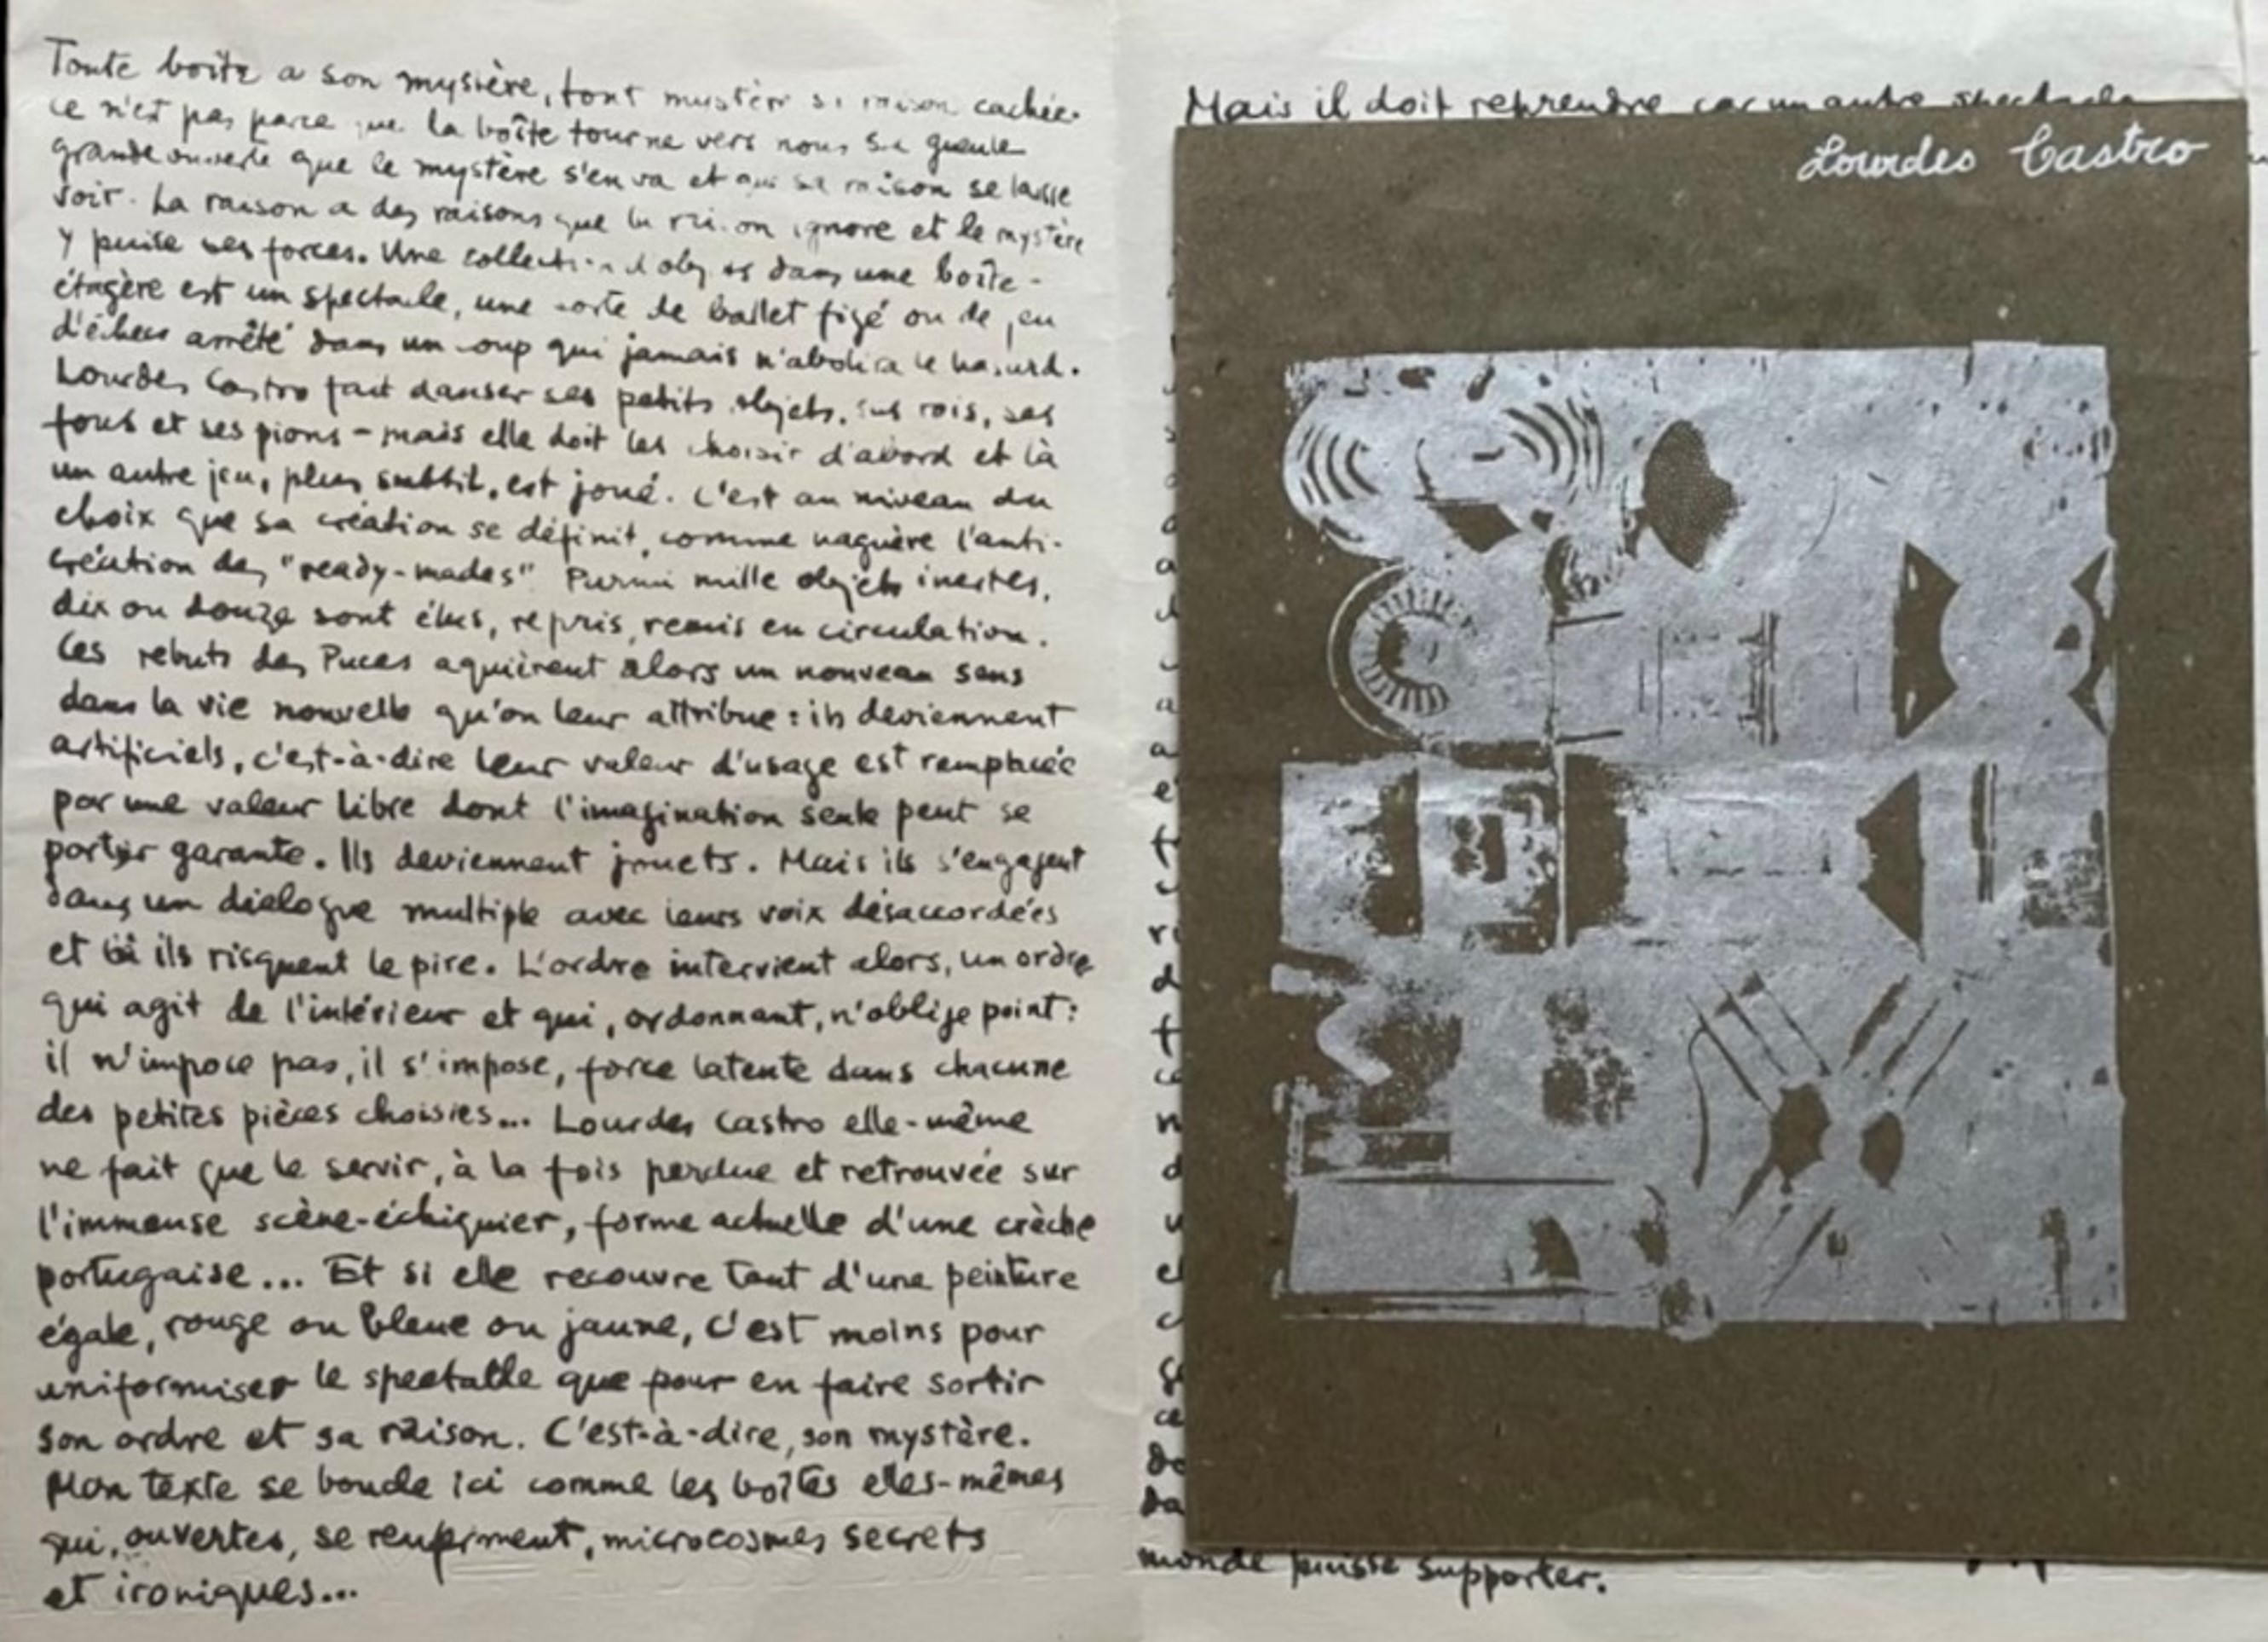 Toute boîte a son mystère, tout mystère sa raison cachée.
Ce n'est pas parce que la boîte tourne vers nous sa gueule
grande ouverte que le mystère s'en va et que sa raison se laisse
voir. La raison a des raisons que la raison ignore et le mystère
y puise ses forces. Une collection d'objets dans une boîte-
étagère est un spectacle, une sorte de ballet figé ou de jeu
d'échecs arrêté dans un coup qui jamais n'abolira le hasard.
Lourdes Castro fait danser ses petits objets, ses rois, ses
fous et ses pions - mais elle doit les choisir d'abord et là
un autre jeu, plus subtil, est joué. C'est au niveau du
choix que sa création se définit, comme naguère l'anti-
création des "ready-mades". Parmi mille objets inertes,
dix ou douze sont élus, repris, remis en circulation.
Les rebuts des Puces aquièrent alors un nouveau sens
dans la vie nouvelle qu'on leur attribue : ils deviennent
artificiels, c'est-à-dire leur valeur d'usage est remplacée
par une valeur libre dont l'imagination seule peut se
porter garante. Ils deviennent jouets. Mais ils s'engagent
dans un dialogue multiple avec leurs voix désaccordées
et là ils risquent le pire. L'ordre intervient alors, un ordre
qui agit de l'intérieur et qui, ordonnant, n'oblige point :
il n'impose pas, il s'impose, force latente dans chacune
des petites pièces choisies... Lourdes Castro elle-même
ne fait que le servir, à la fois perdue et retrouvée sur
l'immense scène-échiquier, forme actuelle d'une crèche
portugaise... Et si elle recouvre tout d'une peinture
égale, rouge ou bleue ou jaune, c'est moins pour
uniformiser le spectacle que pour en faire sortir
son ordre et sa raison. C'est-à-dire, son mystère.
Mon texte se boucle ici comme les boîtes elles-mêmes
qui, ouvertes, se renferment, microcosmes secrets
et ironiques...
Mais il doit reprendre car un autre spectacle
Lourdes Castro
monde puisse supporter.